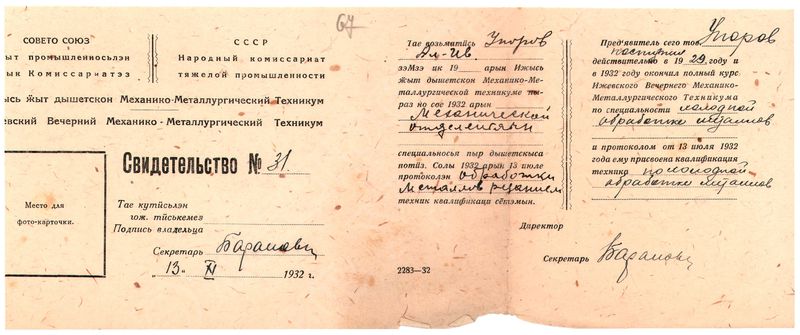 64
СОВЕТО СОЮЗ
ыт промышленносьлэн
ык Комиссариатэз
СССР
Народный комиссариат
тяжелой промышленности
ысь ӝыт дышетскон Механико-Металлургический Техникум
евский Вечерний Механико-Металлургический Техникум
Свидетельство № 31.
Место для
фото-карточки.
Тае кутӥсьлэн
чож. тӥськемез
Подпись владельца
Секретарь
„13" XI 1932 г.
Тае возьматӥсь Упоров
Ал-Ив
ээМзэ ик 19 арын Ижысь
ӝыт дышетскон Механико-Ме-
таллургической техникуме пы-
раз но соё 1932 арын
Механической
отделенияын
специальносья пыр дышетскыса
потӥз. Солы 1932 арын 13 июле
протоколэн обработки
металлов резанием
техник квалификация сётэмын.
2283—32
Пред'явитель сего тов. Упоров
поступил
действительно в 1929 году и
в 1932 году окончил полный курс
Ижевского Вечернего Механико-
Металлургического Техникума
по специальности холодной
обработке металлов
и протоколом от 13 июля 1932
года ему присвоена квалификация
техника по холодной
обработке металлов
Директор
Секретарь